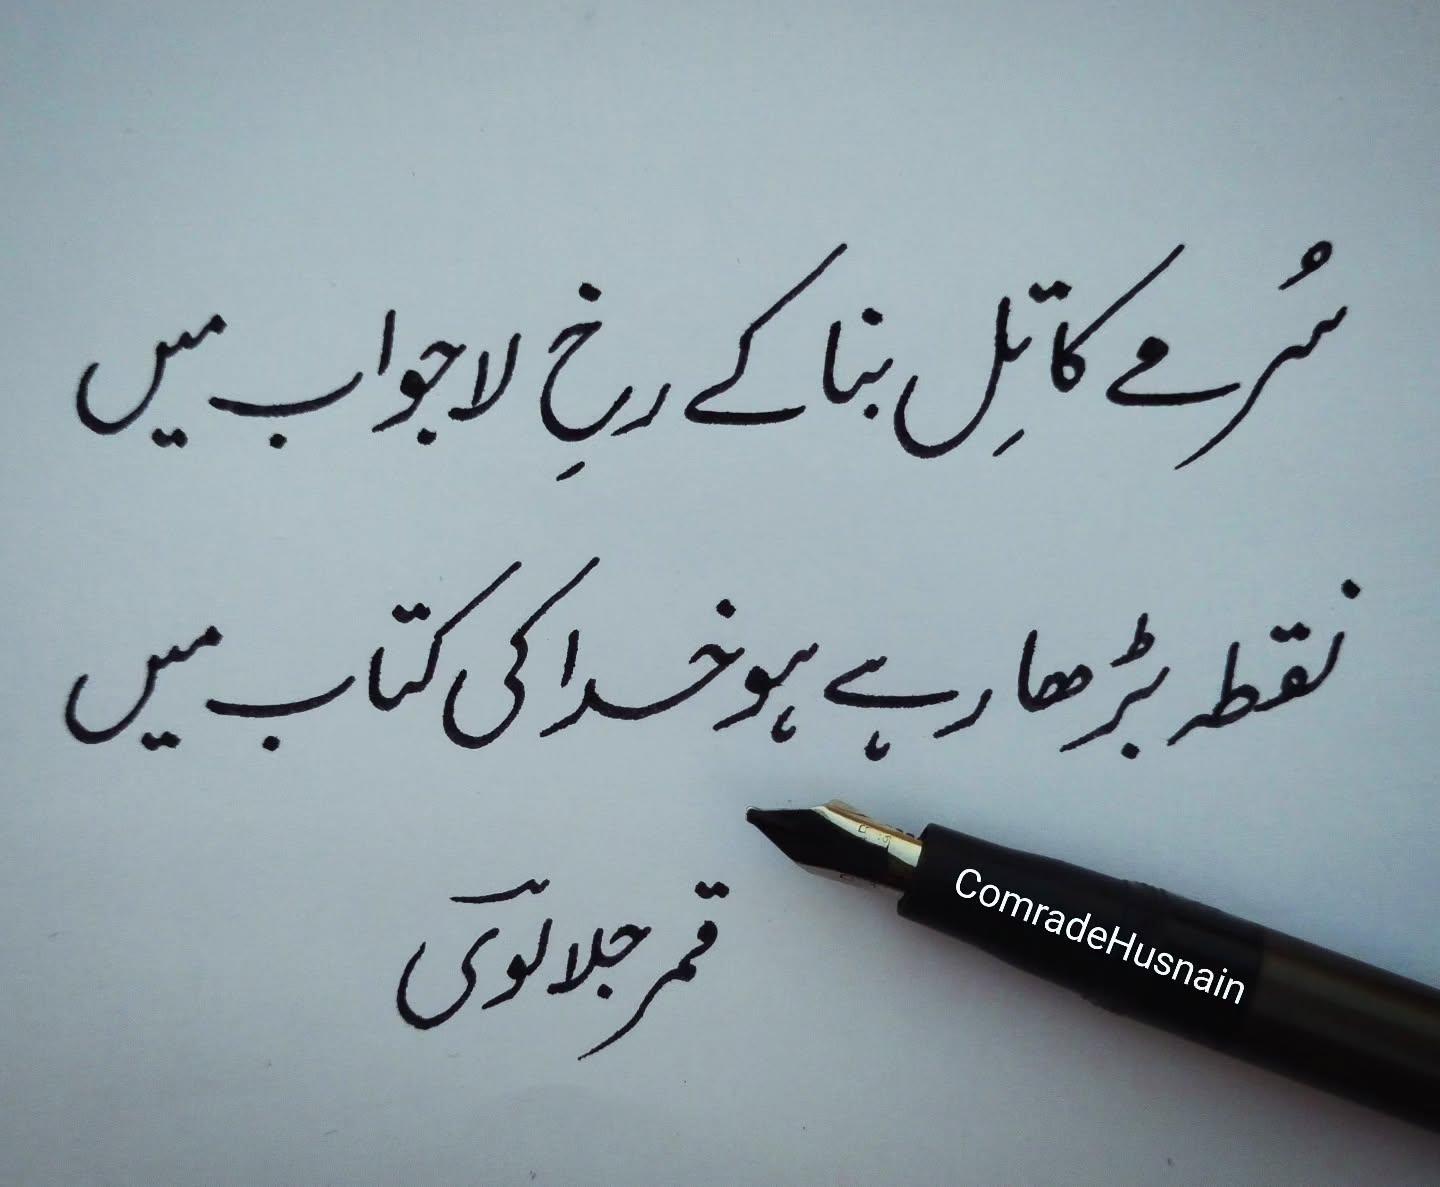 سُرمے کا تِل بنا کے رخِ لاجواب میں
نقطہ بڑھا رہے ہو خدا کی کتاب میں
قمر جلالوی
ComradeHusnain